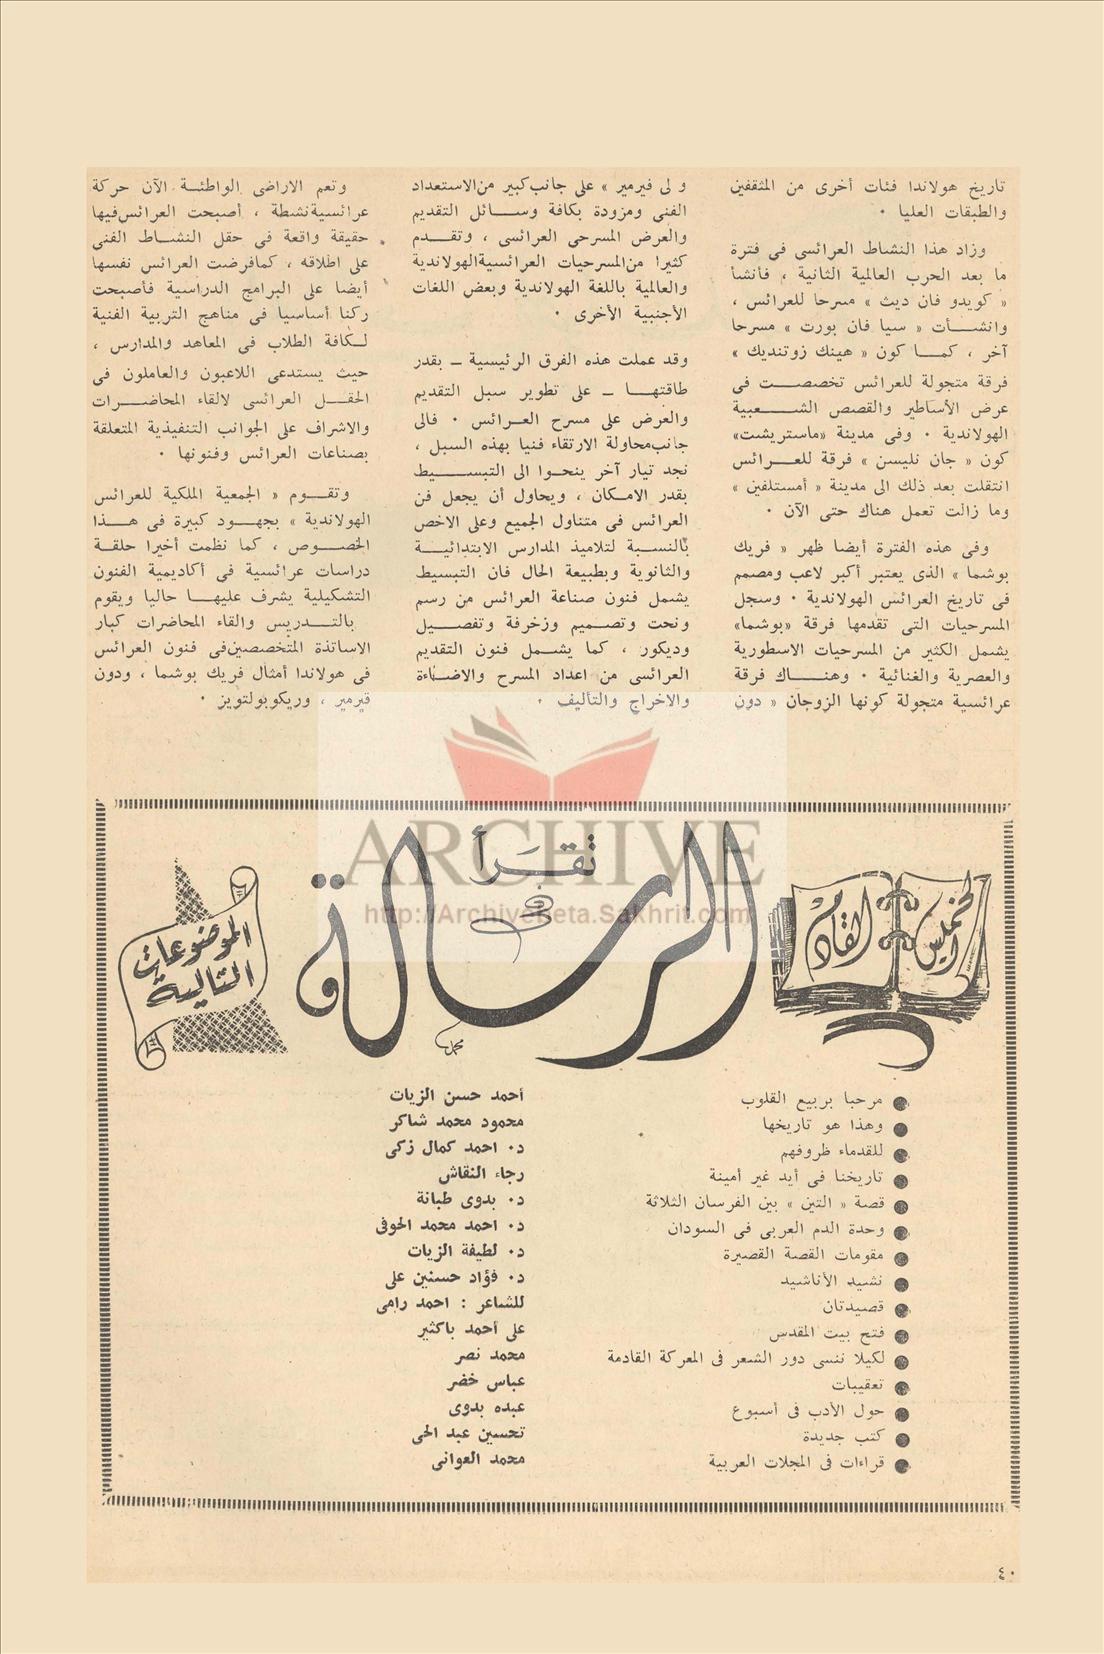 تاريخ هولاندا فئات أخرى من المثقفين
والطبقات العليا ٠
وزاد هذا النشاط العرائسى فى فترة
ما بعد الحرب العالمية الثانية ، فأنشأ
« كويدو فان ديث » مسرحا للعرائس ،
وانشأت « سيا فان بورت » مسرحا
آخر ، كما كون « هينك زوتنديك »
فرقة متجولة للعرائس تخصصت فى
عرض الأساطير والقصص الشعبية
الهولاندية ٠ وفى مدينة «ماستريشت»
كون « جان نليسن » فرقة للعرائس
انتقلت بعد ذلك الى مدينة « أمستلفين »
وما زالت تعمل هناك حتى الآن ٠
وفى هذه الفترة أيضا ظهر « فريك
بوشما » الذى يعتبر أكبر لاعب ومصمم
فى تاريخ العرائس الهولاندية ٠ وسجل
المسرحيات التى تقدمها فرقة «بوشما»
يشمل الكثير من المسرحيات الاسطورية
والعصرية والغنائية ٠ وهناك فرقة
عرائسية متجولة كونها الزوجان « دون
و لى فيرمير » على جانب كبير من الاستعداد
الفنى ومزودة بكافة وسائل التقديم
والعرض المسرحى العرائسى ، وتقدم
كثيرا من المسرحيات العرائسية الهولاندية
والعالمية باللغة الهولاندية وبعض اللغات
الأجنبية الأخرى ٠
وقد عملت هذه الفرق الرئيسية ــ بقدر
طاقتها ــ على تطوير سبل التقديم
والعرض على مسرح العرائس ٠ فالى
جانب محاولة الارتقاء فنيا بهذه السبل ،
نجد تيار آخر ينحوا الى التبسيط
بقدر الامكان ، ويحاول أن يجعل فن
العرائس فى متناول الجميع وعلى الاخص
بالنسبة لتلاميذ المدارس الابتدائية
والثانوية وبطبيعة الحال فان التبسيط
يشمل فنون صناعة العرائس من رسم
ونحت وتصميم وزخرفة وتفصيل
وديكور ، كما يشمل فنون التقديم
العرائسى من اعداد المسرح والاضاءة
والاخراج والتأليف ٠
وتعم الاراضى الواطئة الآن حركة
عرائسية نشطة ، أصبحت العرائس فيها
حقيقة واقعة فى حقل النشاط الفنى
على اطلاقه ، كما فرضت العرائس نفسها
أيضا على البرامج الدراسية فأصبحت
ركنا أساسيا فى مناهج التربية الفنية
لكافة الطلاب فى المعاهد والمدارس ،
حيث يستدعى اللاعبون والعاملون فى
الحقل العرائسى لالقاء المحاضرات
والاشراف على الجوانب التنفيذية المتعلقة
بصناعات العرائس وفنونها ٠
وتقوم « الجمعية الملكية للعرائس
الهولاندية » بجهود كبيرة فى هذا
الخصوص ، كما نظمت أخيرا حلقة
دراسات عرائسية فى أكاديمية الفنون
التشكيلية يشرف عليها حاليا ويقوم
بالتدريس والقاء المحاضرات كبار
الاساتذة المتخصصين فى فنون العرائس
فى هولاندا أمثال فريك بوشما ، ودون
فيرمير ، وريكوبولتويز ٠
ARCHIVE
http://Archivebeta.Sakhrit.com
الخميس القادم
تقرأ
فى
الرسالة
محمد
الموضوعات
التالية
● مرحبا بربيع القلوب أحمد حسن الزيات
● وهذا هو تاريخها محمود محمد شاكر
● للقدماء ظروفهم د٠ احمد كمال زكى
● تاريخنا فى أيد غير أمينة رجاء النقاش
● قصة « التين » بين الفرسان الثلاثة د٠ بدوى طبانة
● وحدة الدم العربى فى السودان د٠ احمد محمد الحوفى
● مقومات القصة القصيرة د٠ لطيفة الزيات
● نشيد الأناشيد د٠ فؤاد حسنين على
● قصيدتان للشاعر : احمد رامى
● فتح بيت المقدس على أحمد باكثير
● لكيلا ننسى دور الشعر فى المعركة القادمة محمد نصر
● تعقيبات عباس خضر
● حول الأدب فى أسبوع عبده بدوى
● كتب جديدة تحسين عبد الحى
● قراءات فى المجلات العربية محمد العوانى
٤٠